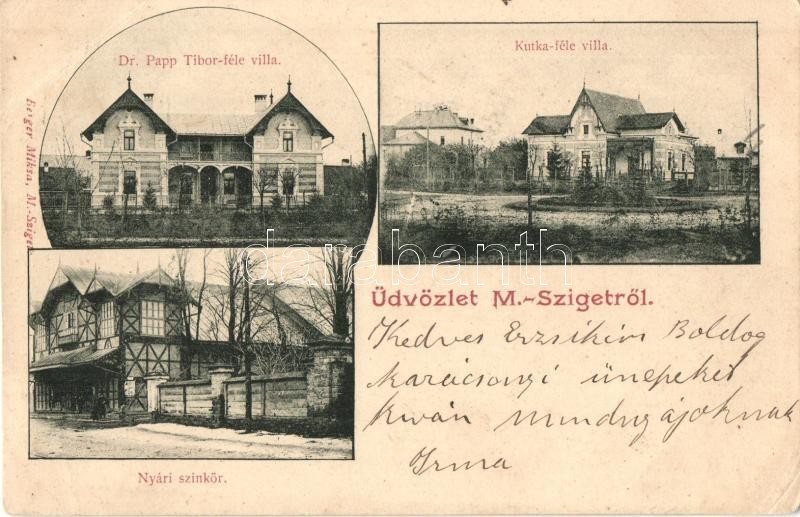 Dr. Papp Tibor-féle villa.
Kutka-féle villa.
Berger Miksa, M.-Sziget
darabanth
Üdvözlet M.-Szigetről.
Kedves Erzsikém Boldog
karácsonyi ünepeket
kíván mindnyájoknak
Irma
Nyári szinkör.